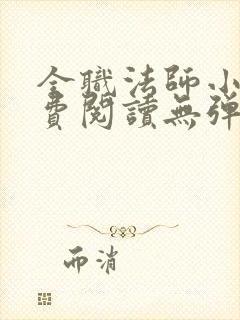 全職法師小
費閱讀無彈
而消